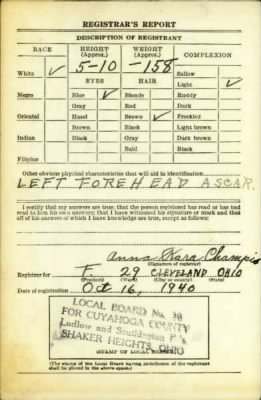 REGISTRAR'S REPORT
DESCRIPTION OF REGISTRANT
RACE HEIGHT (Approx.) WEIGHT (Approx.) COMPLEXION
5-10 -158 Sallow
White ✓ EYES HAIR Light ✓
Negro Blue ✓ Blonde Ruddy
Gray Red Dark
Oriental Hazel Brown ✓ Freckled
Brown Black Light brown
Indian Black Gray Dark brown
Bald Black
Filipino
Other obvious physical characteristics that will aid in identification
LEFT FOREHEAD A SCAR.
I certify that my answers are true; that the person registered has read or has had
read to him his own answers; that I have witnessed his signature or mark and that
all of his answers of which I have knowledge are true, except as follows:
Anna
(Signature of registrar)
Registrar for F. 29 CLEVELAND OHIO
(Precinct) (Ward) (City or county) (State)
Date of registration Oct 16, 1940
LOCAL BOARD No. 38
FOR CUYAHOGA COUNTY
Ludlow and
SHAKER HEIGHTS, OHIO
(STAMP OF LOCAL BOARD)
(The stamp of the Local Board having jurisdiction of the registrant
shall be placed in the above space.)